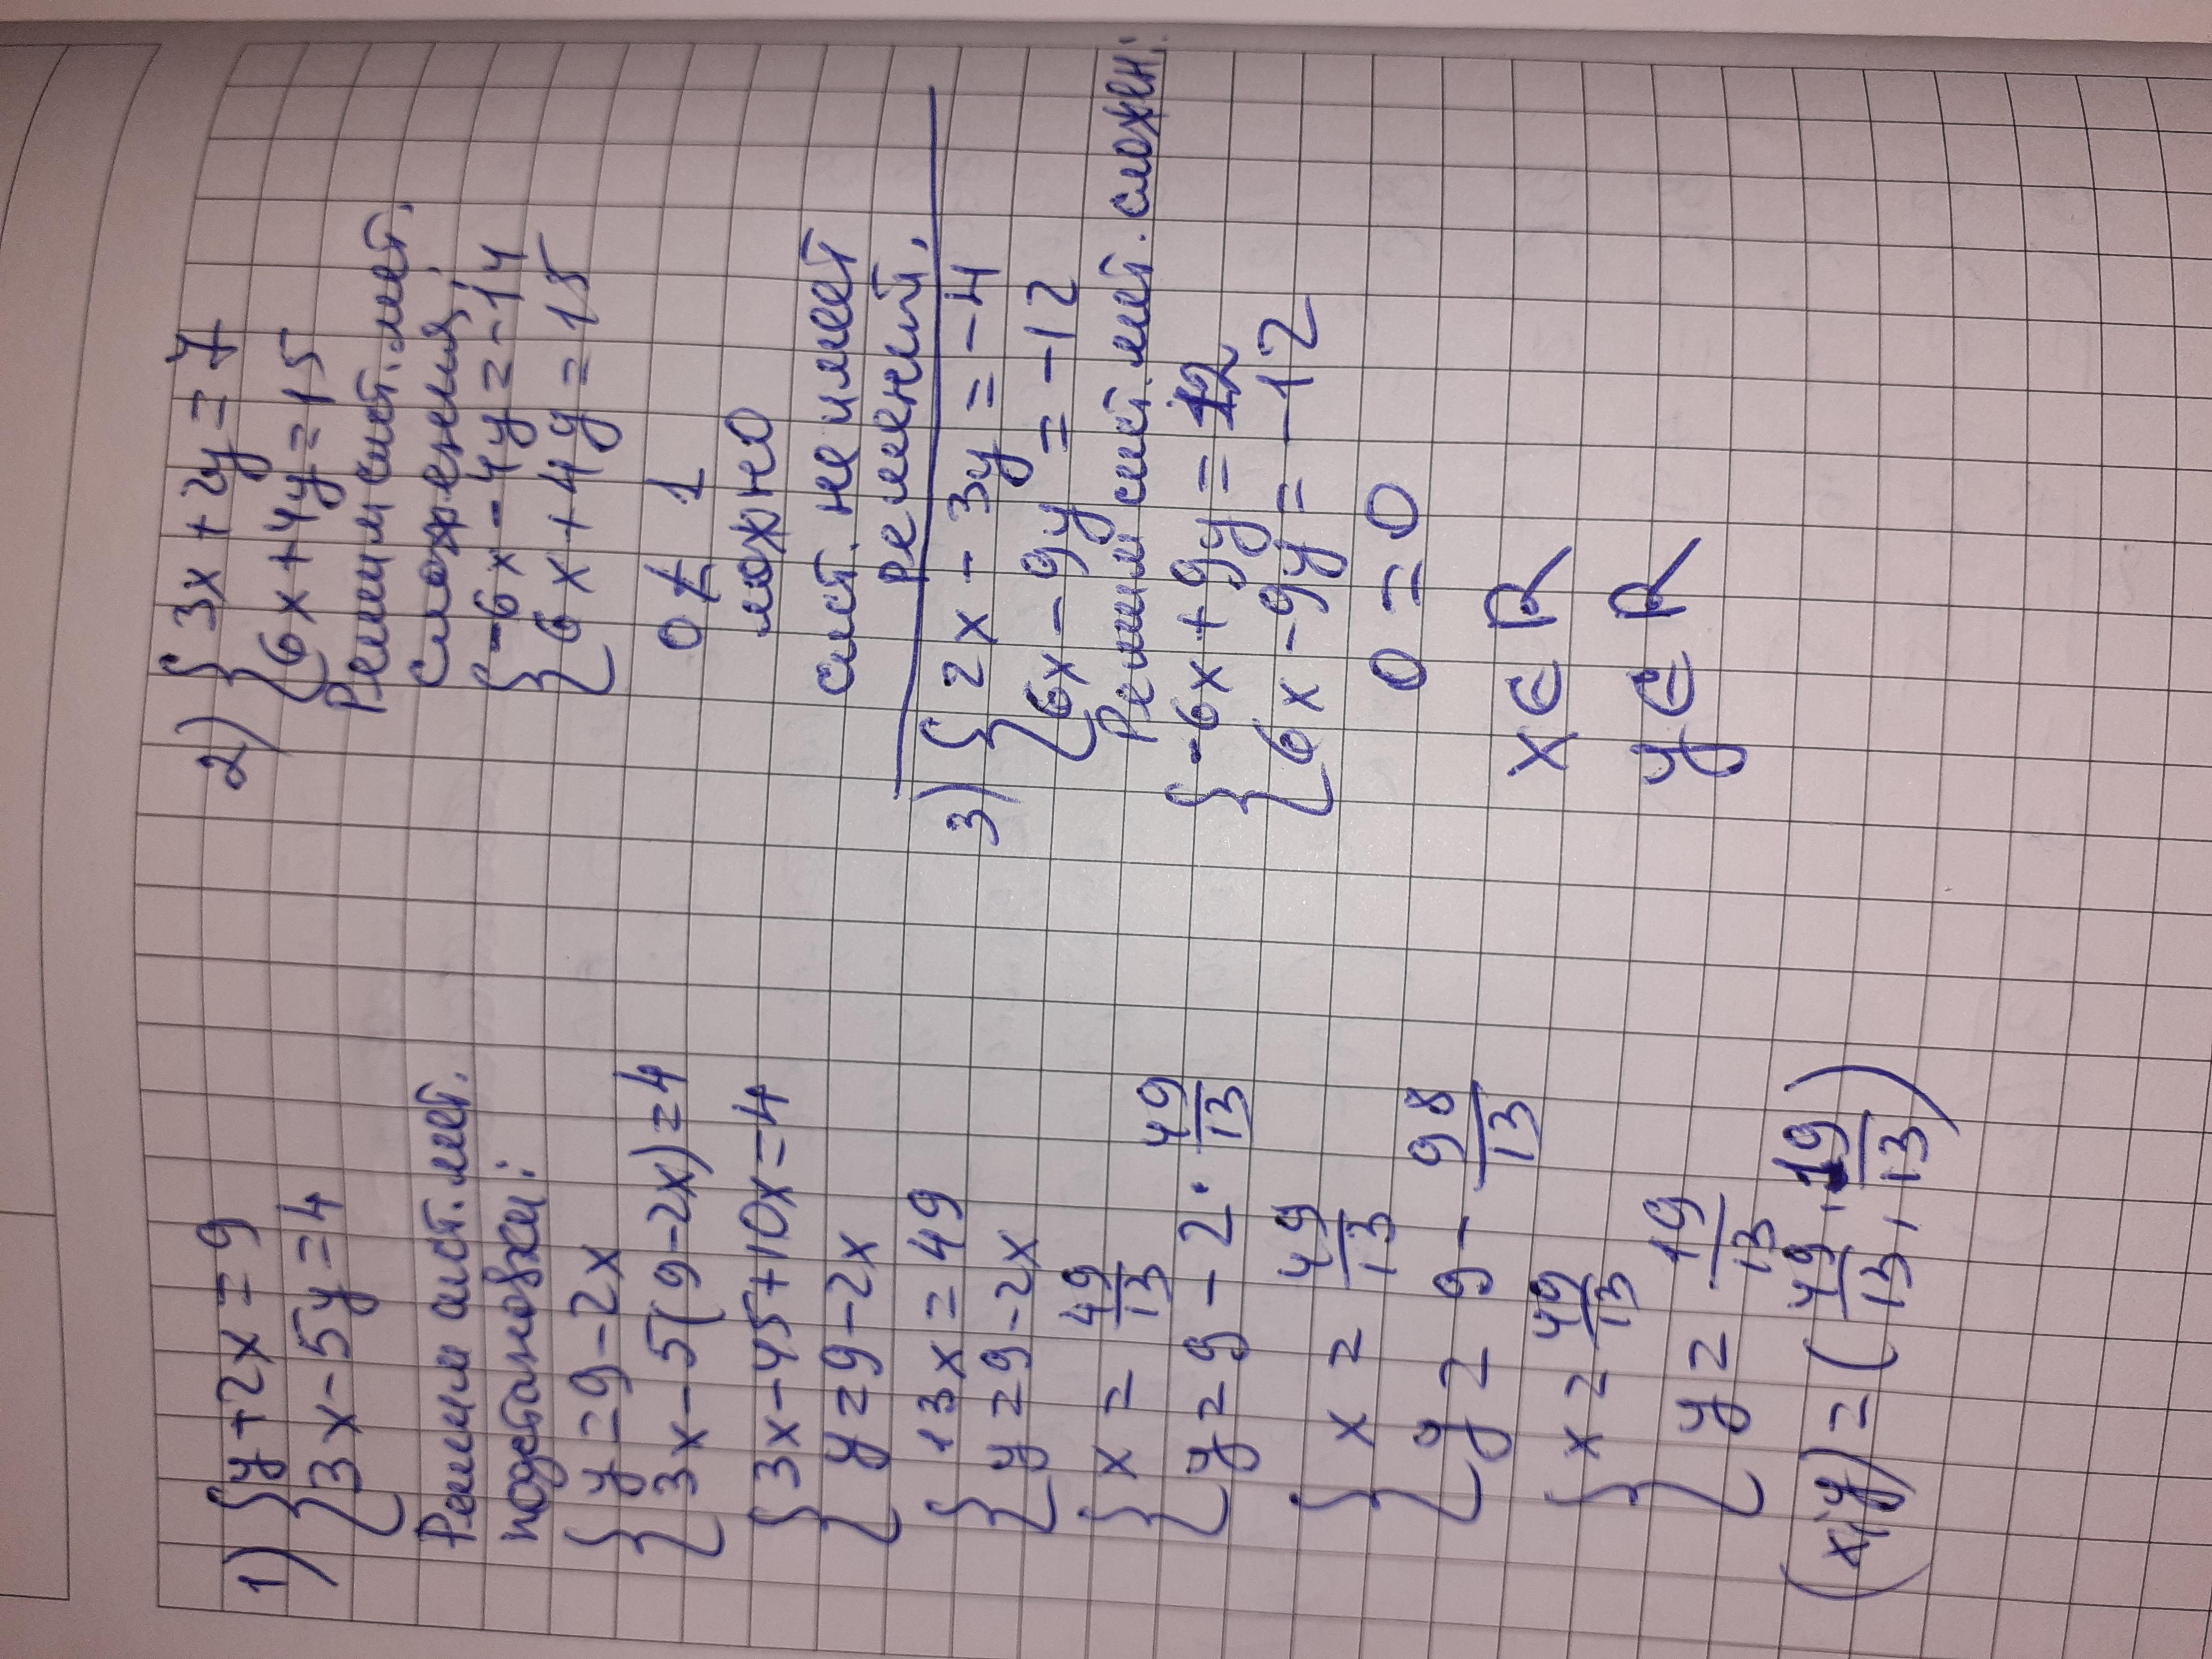 1) { y + 2x = 9
{ 3x - 5y = 4
Решим сист. мет.
подстановки:
{ y = 9 - 2x
{ 3x - 5(9 - 2x) = 4
{ 3x - 45 + 10x = 4
{ y = 9 - 2x
{ 13x = 49
{ y = 9 - 2x
{ x = 49/13
{ y = 9 - 2 · 49/13
{ x = 49/13
{ y = 9 - 98/13
{ x = 49/13
{ y = 19/13
(x; y) = (49/13; 19/13)
2) { 3x + 2y = 7
{ 6x + 4y = 15
Решим сист. мет.
сложения:
{ -6x - 4y = -14
{ 6x + 4y = 15
0 ≠ 1
ложно
сист. не имеет
решений.
3) { 2x - 3y = -4
{ 6x - 9y = -12
Решим сист. мет. сложен:
{ -6x + 9y = 12
{ 6x - 9y = -12
0 = 0
x ∈ R
y ∈ R